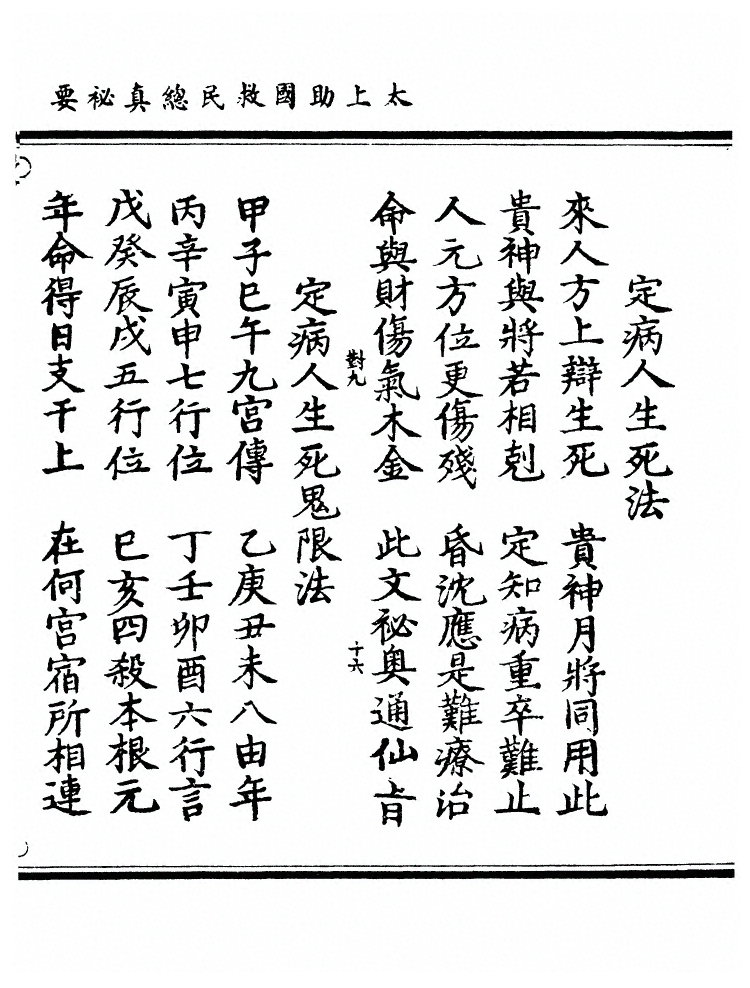 太上助國救民總真祕要
定病人生死法
來人方上辯生死　貴神月將同用此
貴神與將若相剋　定知病重卒難止
人元方位更傷殘　昏沈應是難療治
命與財傷氣木金　此文祕奧通仙旨
對九　十六
定病人生死鬼限法
甲子巳午九宮傳　乙庚丑未八由年
丙辛寅申七行位　丁壬卯酉六行言
戊癸辰戌五行位　巳亥四殺本根元
年命得日支干上　在何宮宿所相連